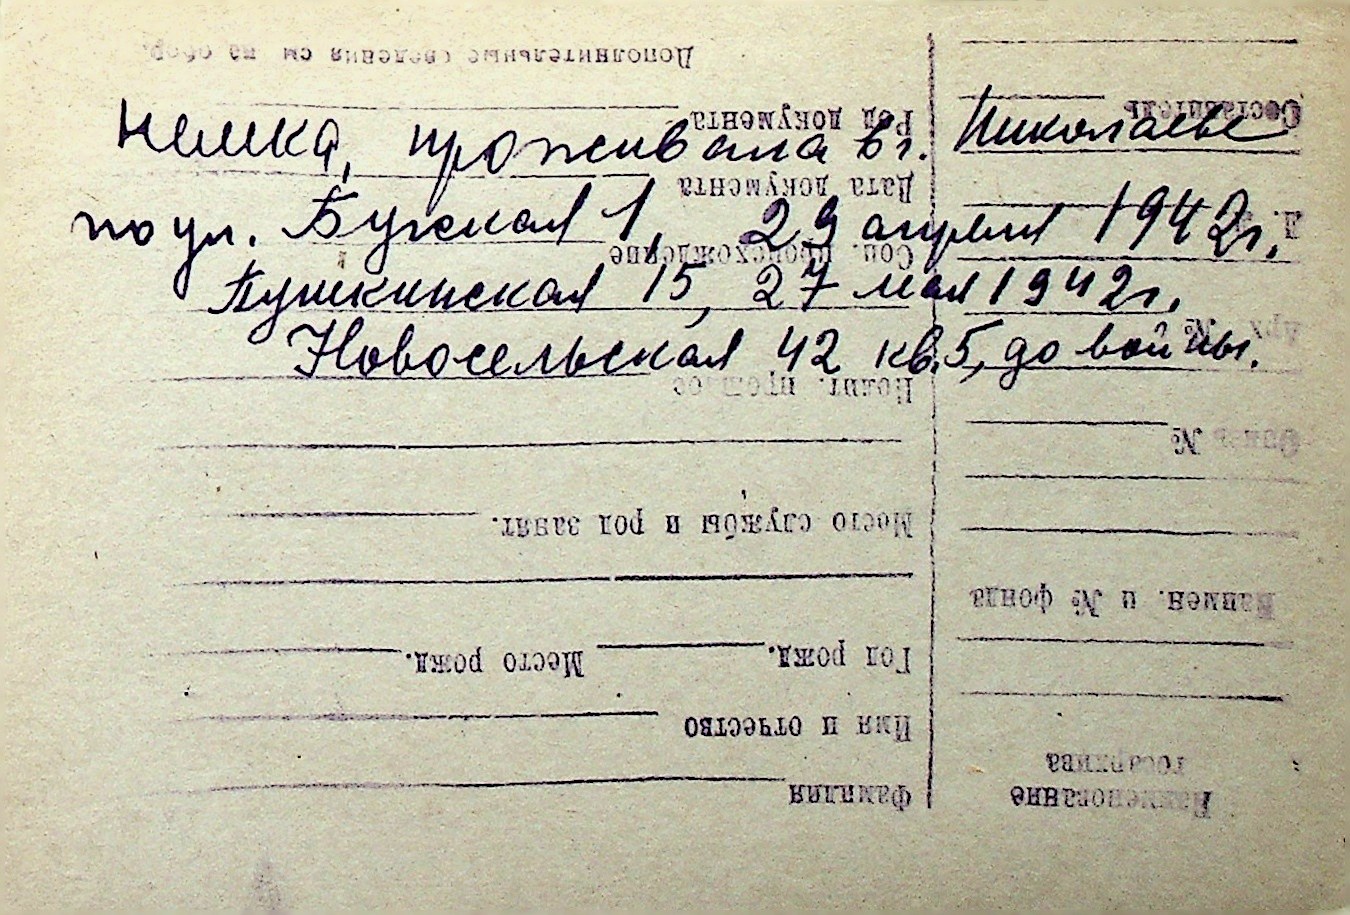 немка, проживала в г. Николаеве
по ул. Бугская 1, 29 апреля 1942г.,
Пушкинская 15, 27 мая 1942г.
Новосельская 42 кв.5, до войны.
Наименование
госархива
Фамилия
Имя и отчество
Год рожд. Место рожд.
Наимен. и № фонда
Место службы и род занят.
№
Полит.
Арх. №
Соц. происхождение
Дата документа
Род документа
Составитель
Дополнительные сведения см на обор.